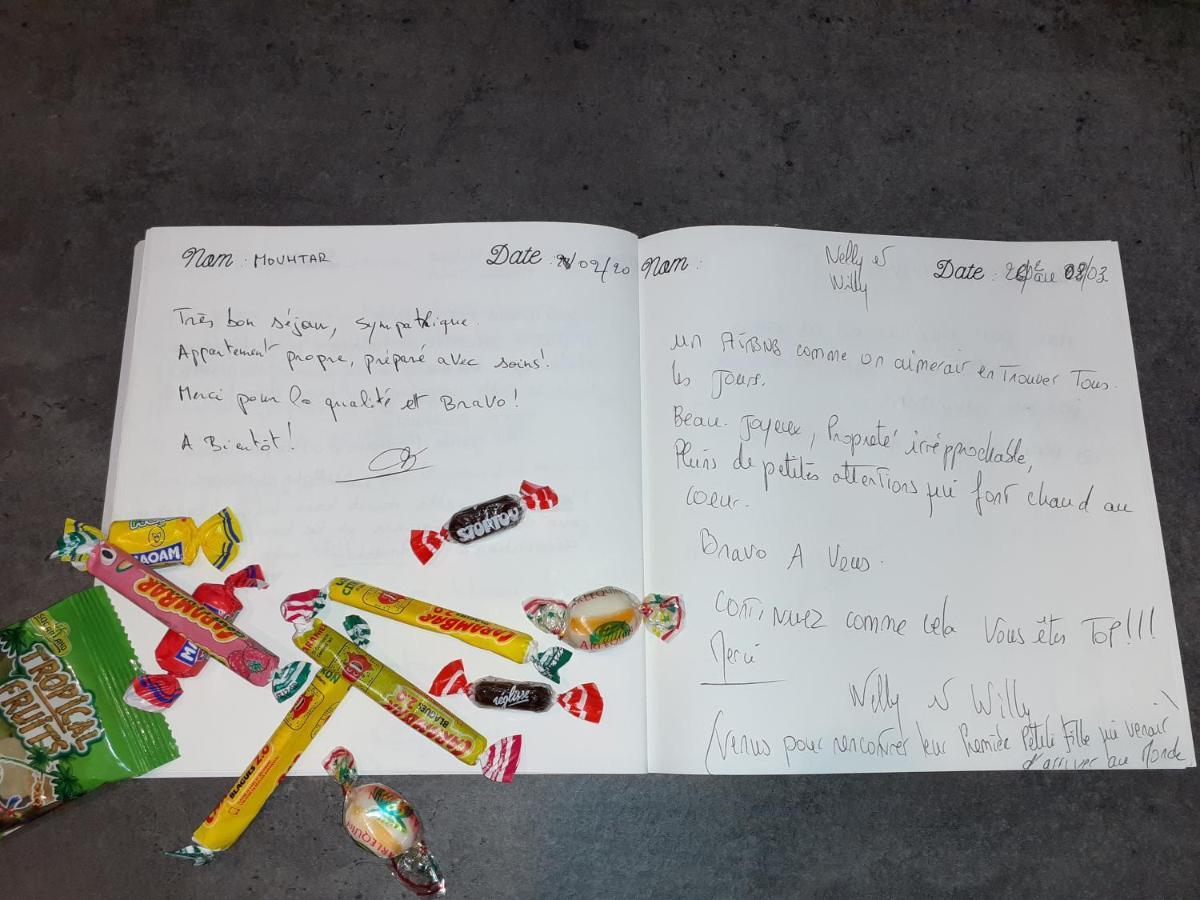 Nom : MOUHTAR Date : /02/20
Très bon séjour, sympathique.
Appartement propre, préparé avec soins!
Merci pour la qualité et Bravo!
A Bientôt!
Nom : Nelly et Date : au 08/03
Willy
un AiRBNB comme on aimerait en Trouver Tous
les jours.
Beau. Joyeux, Propreté irréprochable,
Pleins de petites attentions qui font chaud au
coeur.
Bravo A Vous.
continuez comme cela Vous êtes TOP!!!
Merci
Nelly et Willy
(Venus pour rencontrer leur Première Petite Fille qui venait
d'arriver au Monde
MAOAM
CARAMBAR
MA
TROPICAL
FRUITS
STOPTOU
CARAMBAR
ARLEQUIN
CARAMBAR
BLAGUES 2.0
réglisse
BLAGUES 2.0
ARLEQUIN